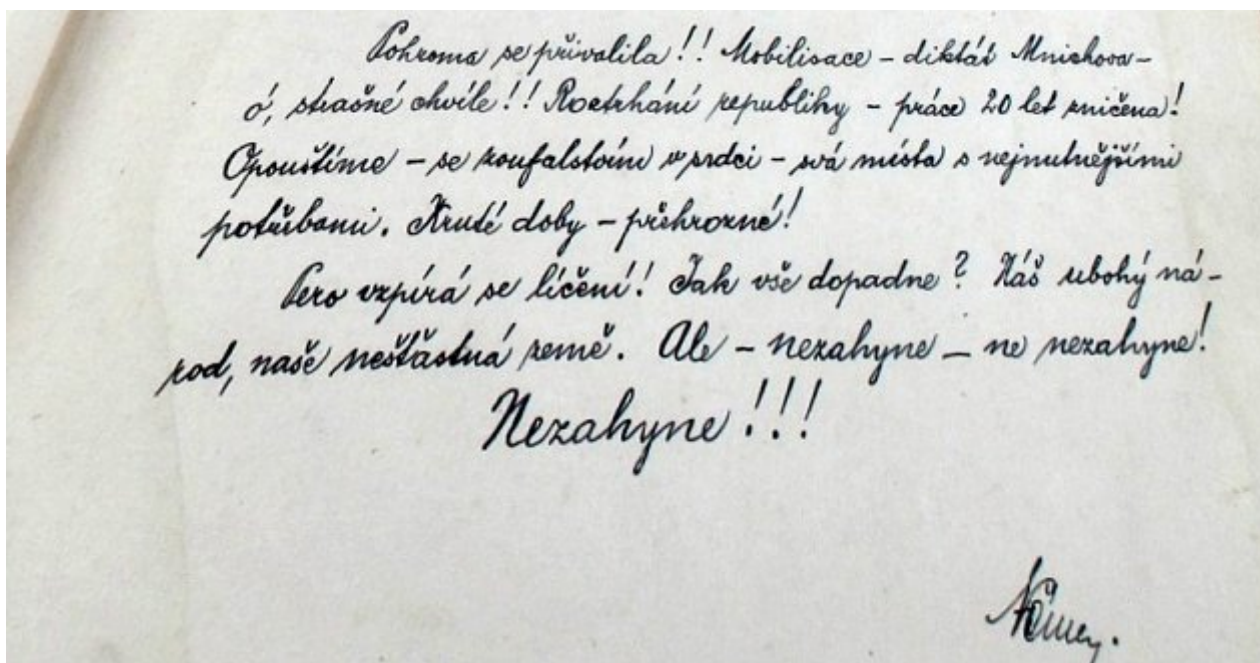 Pohroma se přivalila!! Mobilisace – diktát Mnichova –
ó, strašné chvíle!! Roztrhání republiky – práce 20 let zničena!
Opouštíme – se zoufalstvím v srdci – svá místa s nejnutnějšími
potřebami. Kruté doby – přehrozné!
Pero vzpírá se líčení! Jak vše dopadne? Náš ubohý ná-
rod, naše nešťastná země. Ale – nezahyne – ne nezahyne!
Nezahyne!!!